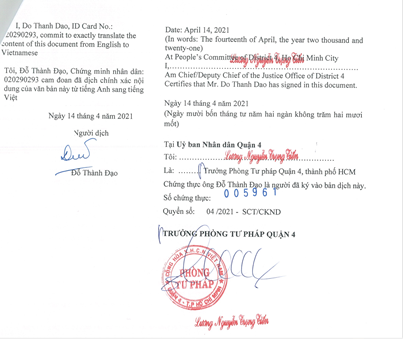 I, Do Thanh Dao, ID Card No.:
020290293, commit to exactly translate the
content of this document from English to
Vietnamese
Tôi, Đỗ Thành Đạo, Chứng minh nhân dân:
020290293 cam đoan đã dịch chính xác nội
dung của văn bản này từ tiếng Anh sang tiếng
Việt
Ngày 14 tháng 4 năm 2021
Người dịch
Đỗ Thành Đạo
Date: April 14, 2021
(In words: The fourteenth of April, the year two thousand and
twenty-one)
At People's Committee of District 4, Ho Chi Minh City
Lương Nguyễn Trọng Tiến
I,
Am Chief/Deputy Chief of the Justice Office of District 4
Certifies that Mr. Do Thanh Dao has signed in this document.
Ngày 14 tháng 4 năm 2021
(Ngày mười bốn tháng tư năm hai ngàn không trăm hai mươi
mốt)
Tại Uỷ ban Nhân dân Quận 4
Tôi: Lương Nguyễn Trọng Tiến
Là: Trưởng Phòng Tư pháp Quận 4, thành phố HCM
Chứng thực ông Đỗ Thành Đạo là người đã ký vào bản dịch này.
Số chứng thực: 005961
Quyển số: 04/2021 - SCT/CKND
TRƯỞNG PHÒNG TƯ PHÁP QUẬN 4
PHÒNG
TƯ PHÁP
Lương Nguyễn Trọng Tiến